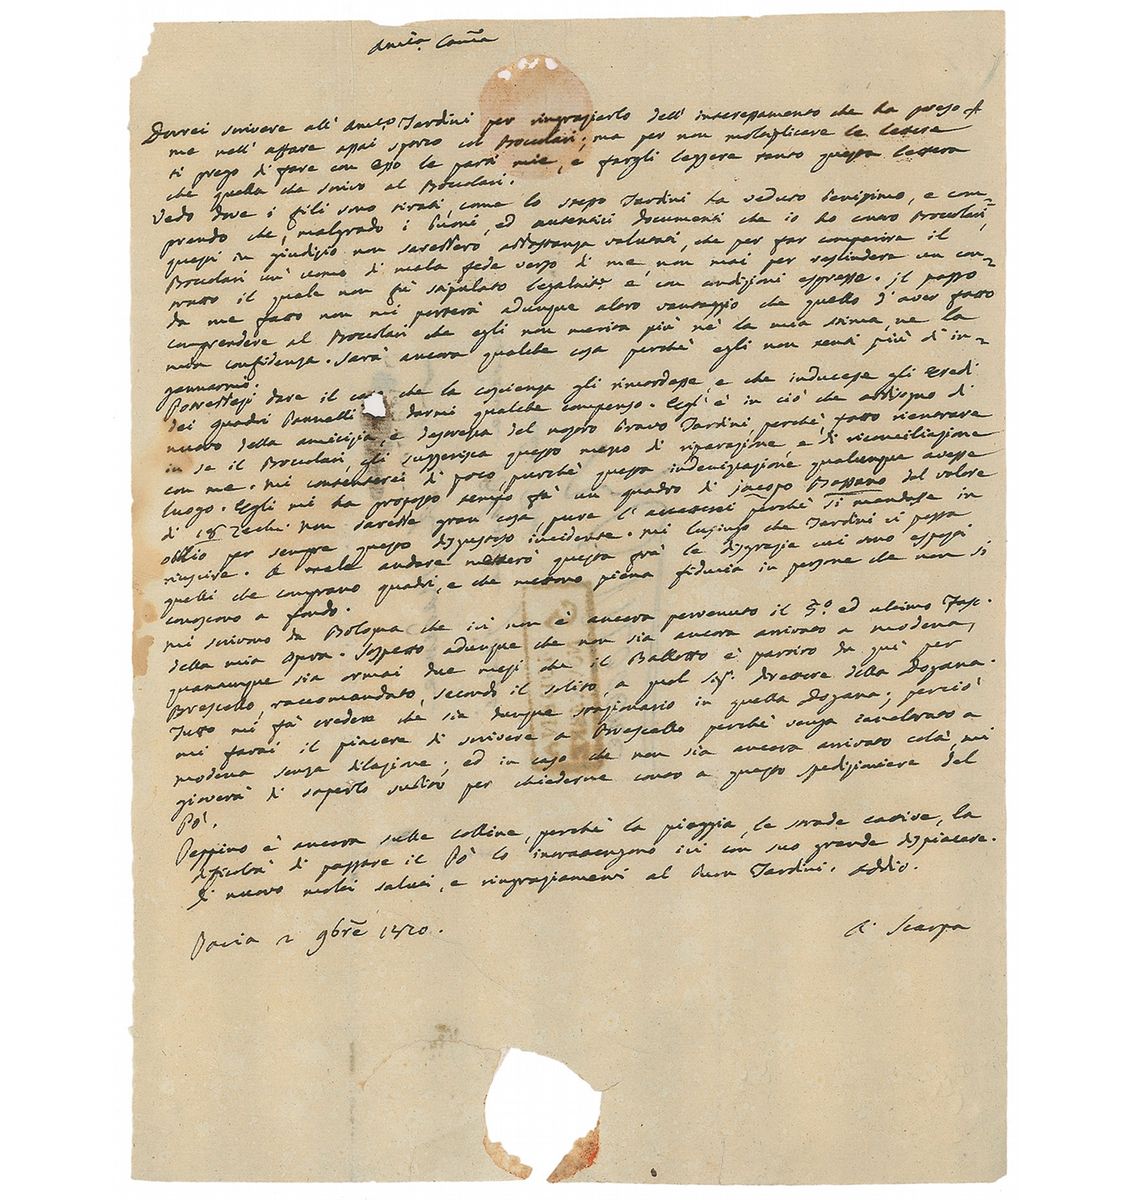 Amico Car.mo
Dovrei scrivere all' Amico Tardini per ringraziarlo dell' interessamento che ha preso p.
me nell' affare assai sporco col Boccolari; ma per non moltiplicare le lettere
ti prego di fare con esso le parti mie, e fargli leggere tanto questa lettera
che quella che scrivo al Boccolari.
Vedo dove i fili sono tirati come lo stesso Tardini ha veduto benissimo, e com-
prendo che, malgrado i buoni, ed autentici documenti che io ho contro Boccolari,
questi in giudizio non sarebbero abbastanza valutati, che per far comparire il
Boccolari un' uomo di mala fede verso di me, non mai per rescindere un con-
tratto il quale non fù stipulato legalmte e con condizioni espresse. Il passo
da me fatto non mi porterà adunque altro vantaggio che quello d' aver fatto
comprendere al Boccolari che egli non merita più nè la mia stima, ne la
mia confidenza. Sarà ancora qualche cosa perchè egli non tenti più d' in-
gannarmi.
Potrebbesi dare il caso che la coscienza gli rimordesse, e che inducesse gli Eredi
dei quadri Pannelli a darmi qualche compenso. Egl' è in ciò che abbisogno di
nuovo della amicizia, e destrezza del nostro bravo Tardini, perchè fatto rientrare
in se il Boccolari, gli suggerisca questo mezzo di riparazione, e di riconciliazione
con me. Mi contenterei di poco, purchè questa indenizzazione qualunque avesse
luogo. Egli mi ha proposto tempo fà un quadro di Jacopo Bassano del valore
di 18 Zecchi. Non sarebbe gran cosa, pure l' accetterei perchè si mandasse in
obblio per sempre questo disgustoso incidente. Mi lusingo che Tardini vi possa
riuscire. A male andare metterò questa frà le disgrazie cui sono esposti
quelli che comprano quadri, e che mettono piena fiducia in persone che non si
conoscono a fondo.
Mi scrivono da Bologna che ivi non è ancora pervenuto il 5.o ed ultimo Fasc.
della mia Opera. Sospetto adunque che non sia ancora arrivato a Modena,
quantunque sia ormai due mesi che il Balletto è partito da quì per
Brescello, raccomandato, secondo il solito, a quel Sig.r direttore della Dogana.
Tutto mi fà credere che sia dunque stazionario in quella Dogana; perciò
mi farai il piacere di scrivere a Brescello perchè venga inoltrato a
Modena senza dilazione; ed in caso che non sia ancora arrivato colà, mi
gioverà di saperlo subito per chiederne conto a questo spedizioniere del
Pò.
Peppino è ancora sulle colline, perchè la pioggia, le strade cattive, la
difficoltà di passare il Pò lo intrattengono ivi con suo grande dispiacere.
Di nuovo molti saluti, e ringraziamenti al buon Tardini. Addio.
Pavia 2 9bre 1820.
A. Scarpa